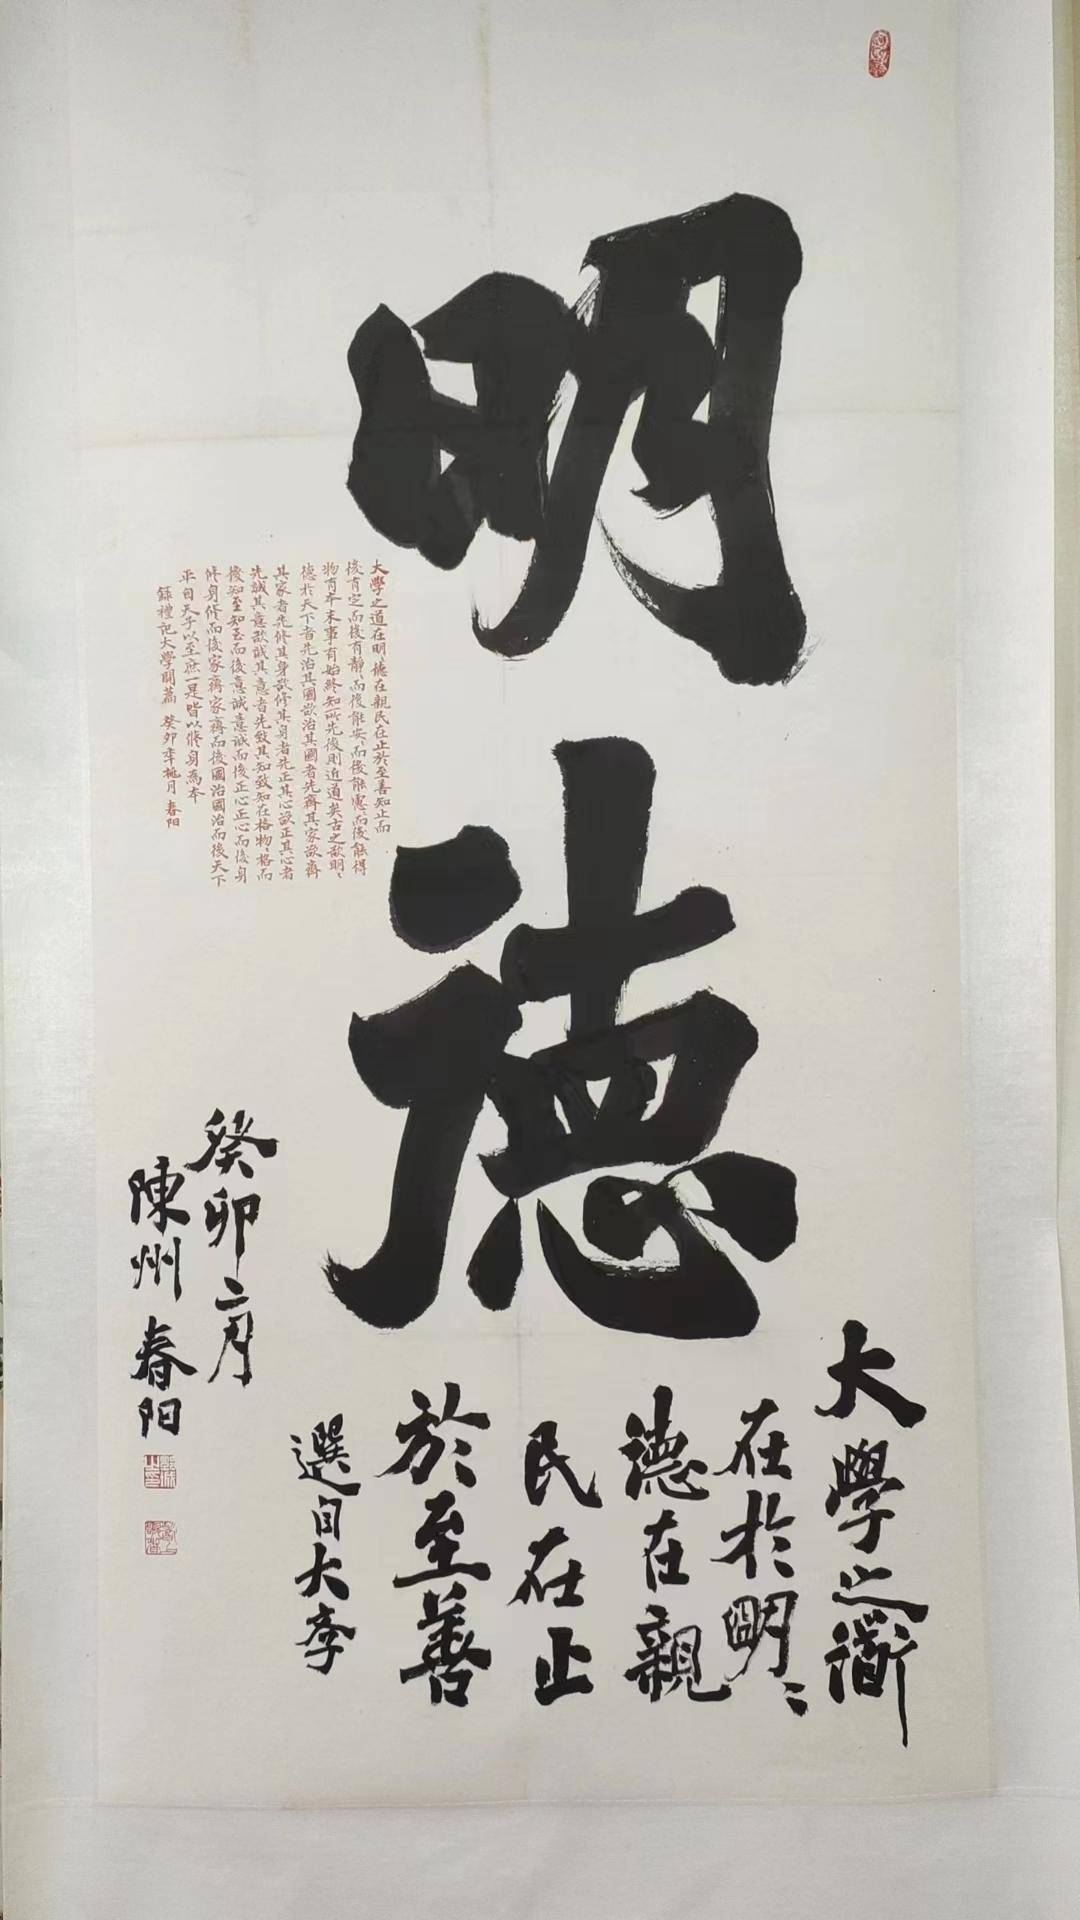 明
德
大學之道在明德在親民在止於至善知止而
後有定而後有靜而後能安而後能慮而後能得
物有本末事有始終知所先後則近道矣古之欲明〻
德於天下者先治其國欲治其國者先齊其家欲齊
其家者先修其身欲修其身者先正其心欲正其心者
先誠其意欲誠其意者先致其知致知在格物〻格而
後知至知至而後意誠意誠而後正心正心而後身
修身修而後家齊家齊而後國治國治而後天下
平自天子以至庶一是皆以修身為本
錄禮記大學開篇 癸卯年桃月 春阳
大學之衜
在於明〻
德在親
民在止
於至善
選自大李
癸卯二月
陳州春阳